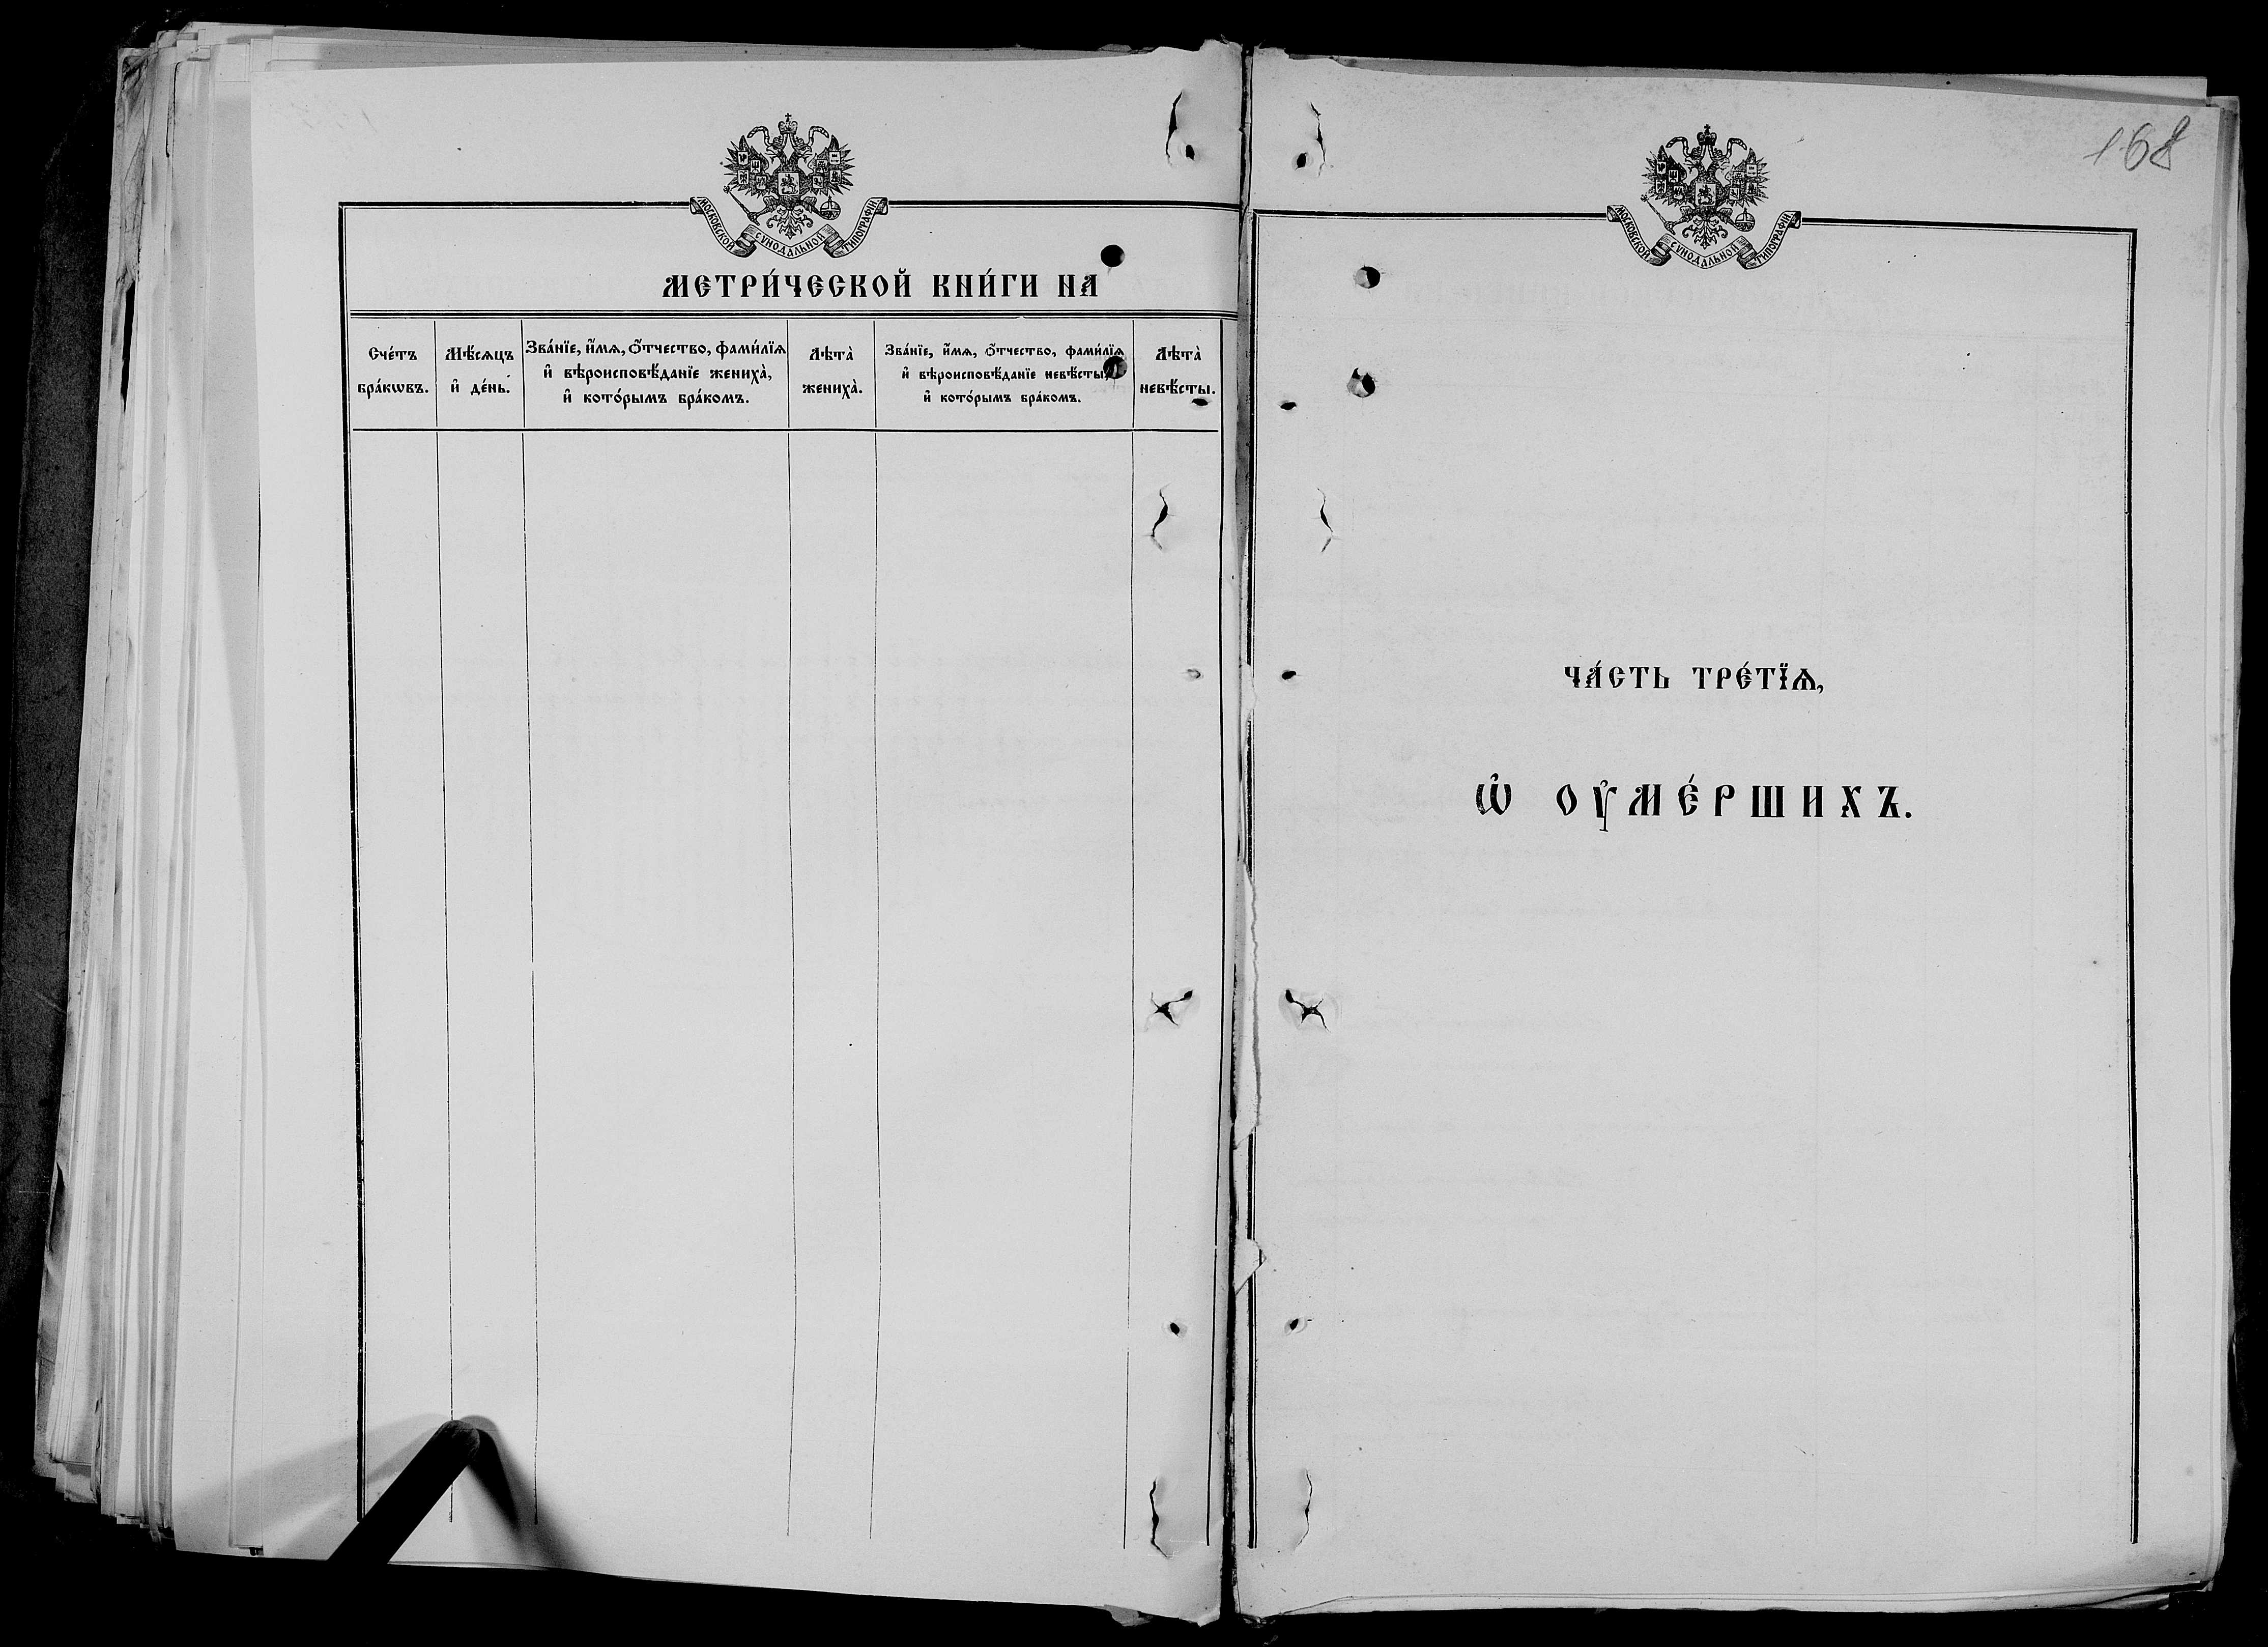 МОСКОВСКОЙ СУНОДАЛЬНОЙ ТИПОГРАФІИ
МЕТРИ́ЧЕСКОЙ КНИ́ГИ НА
Сче́тъ бра́кѡвъ.
Мѣ́сяцъ и҆ де́нь.
Зва́нїе, и҆́мѧ, ѻ҆́тчество, фами́лїѧ
и҆ вѣроисповѣ́данїе жениха̀,
и҆ кото́рымъ бра́комъ.
Лѣта̀ жениха̀.
Зва́нїе, и҆́мѧ, ѻ҆́тчество, фами́лїѧ
и҆ вѣроисповѣ́данїе невѣ́сты,
и҆ кото́рымъ бра́комъ.
Лѣта̀ невѣ́сты.
168
МОСКОВСКОЙ СУНОДАЛЬНОЙ ТИПОГРАФІИ
ЧА́СТЬ ТРЕ́ТЇѦ,
Ѡ҆ ОУ҆МЕ́РШИХЪ.